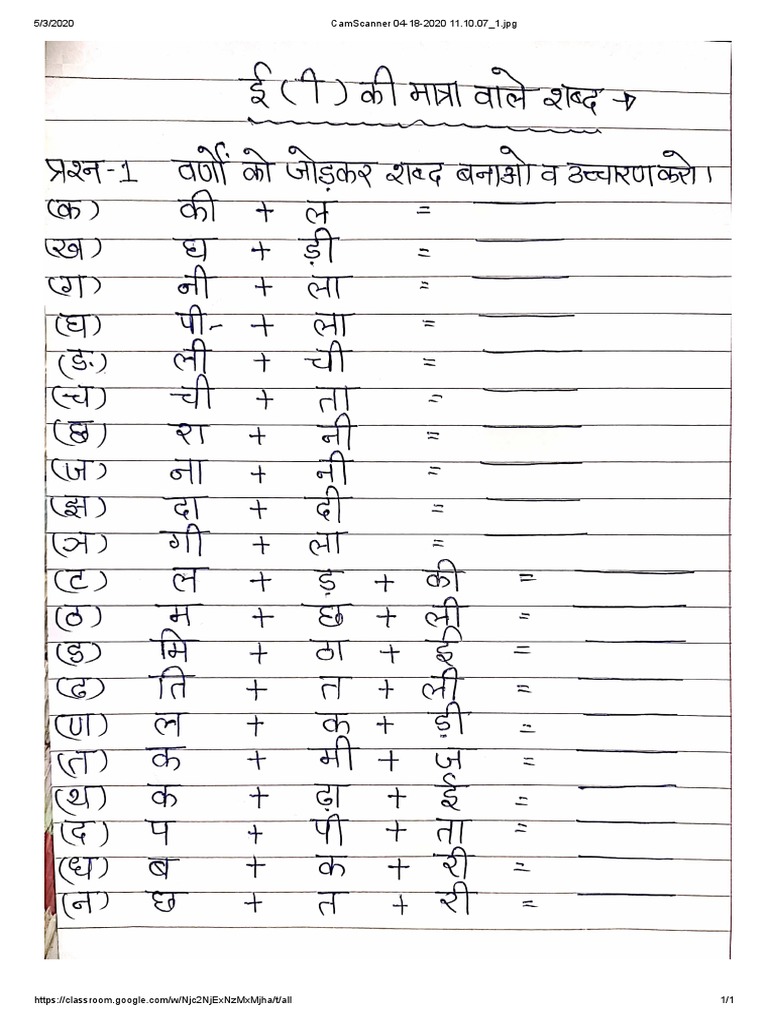 5/3/2020 CamScanner 04-18-2020 11.10.07_1.jpg
ई ( ी ) की मात्रा वाले शब्द →
प्रश्न-1 वर्णों को जोड़कर शब्द बनाओ व उच्चारण करो।
(क) की + ल = ____
(ख) घ + ड़ी = ____
(ग) नी + ला = ____
(घ) पी- + ला = ____
(ङ) ली + ची = ____
(च) ची + ता = ____
(छ) रा + नी = ____
(ज) ना + नी = ____
(झ) दा + दी = ____
(ञ) गी + ला = ____
(ट) ल + ड़ + की = ____
(ठ) म + छ + ली = ____
(ड) मि + ठा + ई = ____
(ढ) ति + त + ली = ____
(ण) ल + क + ड़ी = ____
(त) क + मी + ज = ____
(थ) क + ढ़ा + ई = ____
(द) प + पी + ता = ____
(ध) ब + क + री = ____
(न) छ + त + री = ____
https://classroom.google.com/w/Njc2NjExNzMxMjha/t/all 1/1